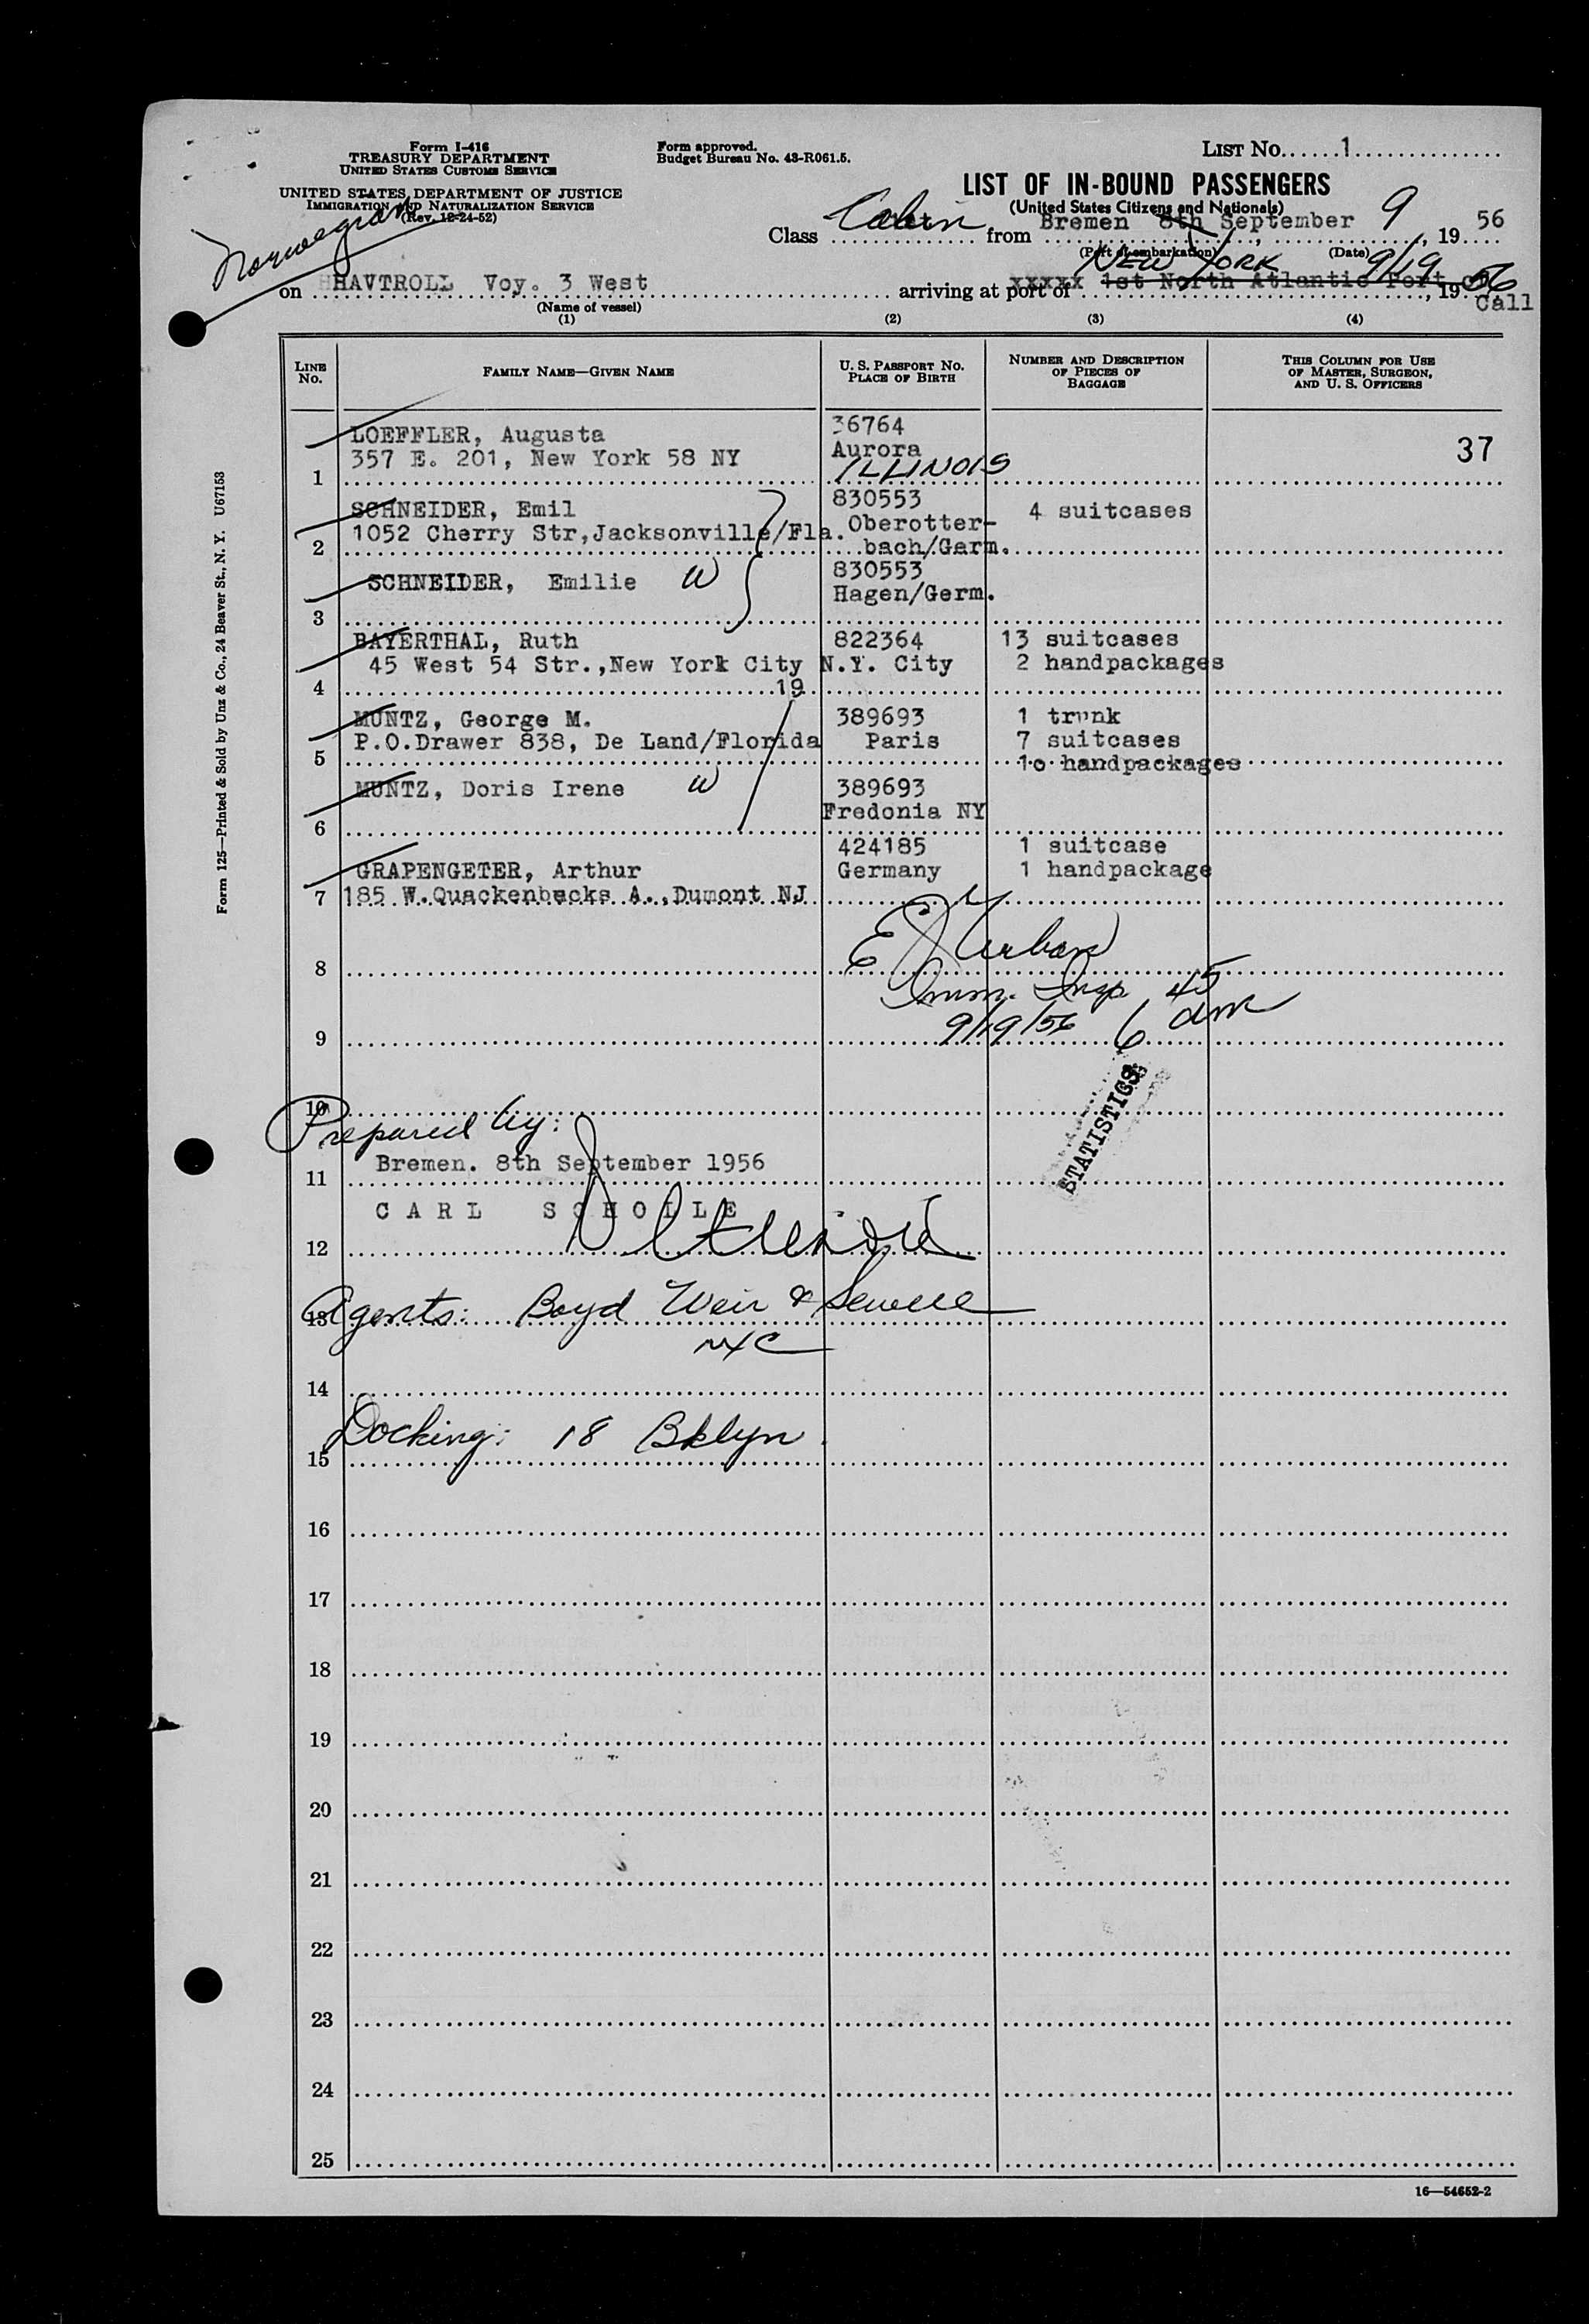 Form I-416
TREASURY DEPARTMENT
UNITED STATES CUSTOMS SERVICE
UNITED STATES DEPARTMENT OF JUSTICE
IMMIGRATION AND NATURALIZATION SERVICE
(Rev. 12-24-52)
Norwegian
Form approved.
Budget Bureau No. 43-R061.5.
LIST No. 1
LIST OF IN-BOUND PASSENGERS
(United States Citizens and Nationals)
Class Cabin from Bremen 8th September 9, 19 56
(Port of embarkation) (Date)
on HAVTROLL Voy. 3 West arriving at port of xxxxx 1st North Atlantic Port of Call NEW YORK 9/19, 19 56
(Name of vessel)
(1) (2) (3) (4)
LINE No. FAMILY NAME—GIVEN NAME U. S. PASSPORT No. PLACE OF BIRTH NUMBER AND DESCRIPTION OF PIECES OF BAGGAGE THIS COLUMN FOR USE OF MASTER, SURGEON, AND U. S. OFFICERS
LOEFFLER, Augusta 36764
357 E. 201, New York 58 NY Aurora 37
1 ILLINOIS
SCHNEIDER, Emil 830553 4 suitcases
1052 Cherry Str,Jacksonville/Fla. Oberotter-
2 bach/Germ.
SCHNEIDER, Emilie W 830553
Hagen/Germ.
3
BAYERTHAL, Ruth 822364 13 suitcases
45 West 54 Str.,New York City N.Y. City 2 handpackages
4 19
MUNTZ, George M. 389693 1 trunk
P.O.Drawer 838, De Land/Florida Paris 7 suitcases
5 1o handpackages
MUNTZ, Doris Irene W 389693
Fredonia NY
6
424185 1 suitcase
GRAPENGETER, Arthur Germany 1 handpackage
7 185 W.Quackenbucks A.,Dumont NJ
E J Urban
8
Imm. Insp 45
9/19/56 6
9
STATISTICS
10
Prepared by:
Bremen. 8th September 1956
11
CARL SCHOLLE
12
13 Agents: Boyd Weir & Sewell
NYC
14
Docking: 18 Bklyn
15
16
17
18
19
20
21
22
23
24
25
16—54652-2
Form 125—Printed & Sold by Unz & Co., 24 Beaver St., N. Y. U67153